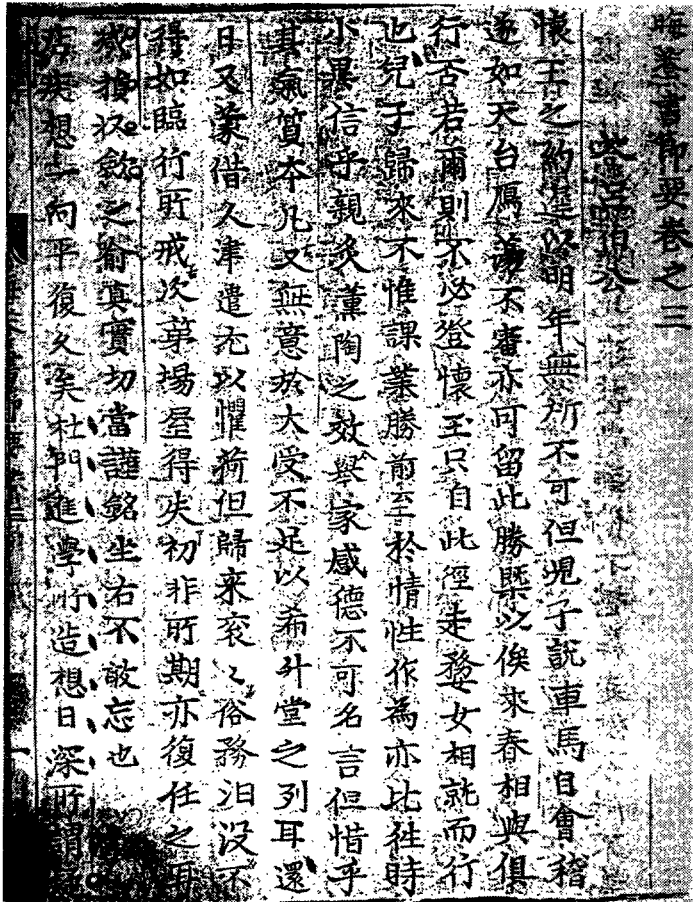 晦菴書節要卷之三
答呂伯公
懷玉之約遲以明年無所不可但児子説車馬自會稽
遂如天台鴈蕩不審亦可留此勝槩以俟來春相與俱
行否若爾則不必登懷玉只自此徑走婺女相就而行
也兒子歸來不惟課業勝前至於情性作為亦比徃時
小異信乎親炙薰陶之效舉家感德不可名言但惜乎
其氣質本凡又無意於大受不足以希升堂之列耳還
日又蒙借人津遣尤以愧荷但歸來衮〻俗務汩没不
得如臨行所戒次第場屋得失初非所期亦復任之耳
戒損收歛之喻真實切當謹銘坐右不敢忘也
疾想已向平復久矣杜門進學所造想日深所謂